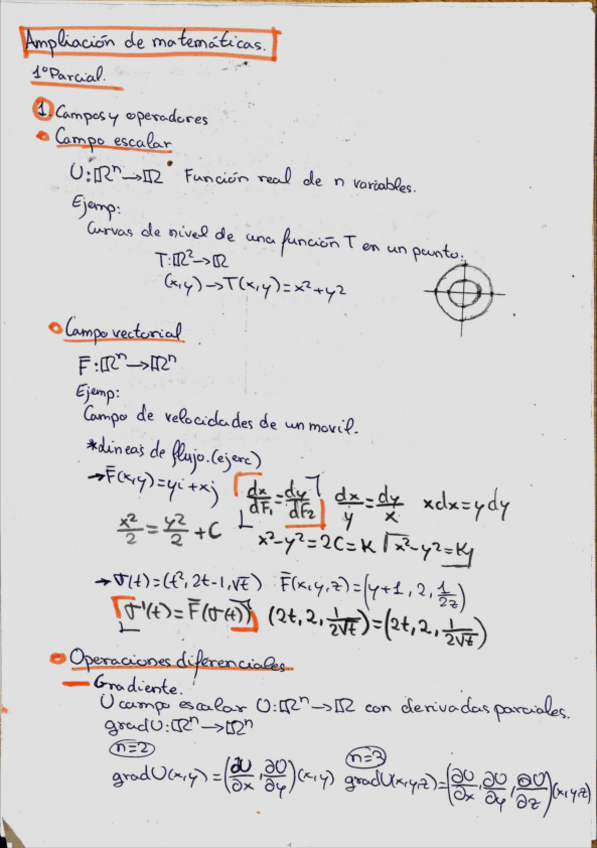 Ampliación de matemáticas.
1º Parcial.
1. Campos y operadores
Campo escalar
U: ℝⁿ → ℝ Función real de n variables.
Ejemp:
Curvas de nivel de una función T en un punto.
T: ℝ² → ℝ
(x,y) → T(x,y) = x² + y²
Campo vectorial
F̄: ℝⁿ → ℝⁿ
Ejemp:
Campo de velocidades de un movil.
*Lineas de flujo. (ejerc)
→ F̄(x,y) = yi + xj dx/dF₁ = dy/dF₂ dx/y = dy/x xdx = ydy
x²/2 = y²/2 + C x² - y² = 2C = K x² - y² = K
→ σ(t) = (t², 2t-1, √t) F̄(x,y,z) = (y+1, 2, 1/2z)
σ'(t) = F̄(σ(t)) (2t, 2, 1/2√t) = (2t, 2, 1/2√t)
Operaciones diferenciales
— Gradiente.
U campo escalar U: ℝⁿ → ℝ con derivadas parciales.
grad U: ℝⁿ → ℝⁿ
n=2 n=3
grad U(x,y) = (∂U/∂x, ∂U/∂y)(x,y) grad U(x,y,z) = (∂U/∂x, ∂U/∂y, ∂U/∂z)(x,y,z)